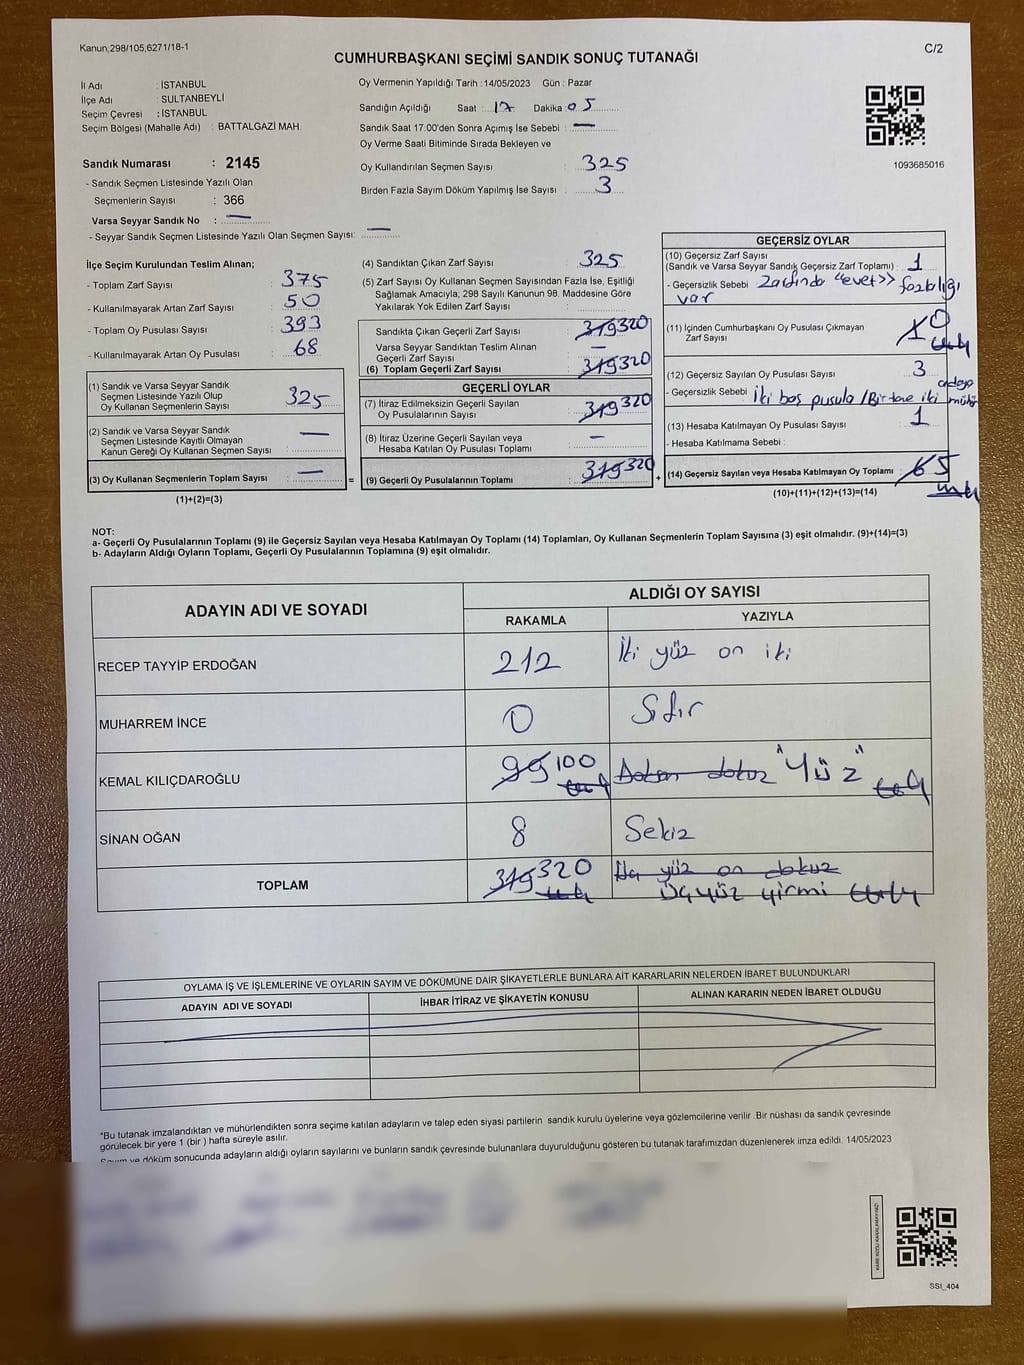 Kanun,298/105,6271/18-1
C/2
CUMHURBAŞKANI SEÇİMİ SANDIK SONUÇ TUTANAĞI
İl Adı : İSTANBUL
İlçe Adı : SULTANBEYLİ
Seçim Çevresi : İSTANBUL
Seçim Bölgesi (Mahalle Adı) : BATTALGAZİ MAH.
Sandık Numarası : 2145
- Sandık Seçmen Listesinde Yazılı Olan
Seçmenlerin Sayısı : 366
Varsa Seyyar Sandık No : —
- Seyyar Sandık Seçmen Listesinde Yazılı Olan Seçmen Sayısı: —
Oy Vermenin Yapıldığı Tarih : 14/05/2023 Gün : Pazar
Sandığın Açıldığı Saat : 17 Dakika 05
Sandık Saat 17:00'den Sonra Açımış İse Sebebi : —
Oy Verme Saati Bitiminde Sırada Bekleyen ve
Oy Kullandırılan Seçmen Sayısı : 325
Birden Fazla Sayım Döküm Yapılmış İse Sayısı : 3
1093685016
İlçe Seçim Kurulundan Teslim Alınan;
- Toplam Zarf Sayısı : 375
- Kullanılmayarak Artan Zarf Sayısı : 50
- Toplam Oy Pusulası Sayısı : 393
- Kullanılmayarak Artan Oy Pusulası : 68
(1) Sandık ve Varsa Seyyar Sandık
Seçmen Listesinde Yazılı Olup
Oy Kullanan Seçmenlerin Sayısı : 325
(2) Sandık ve Varsa Seyyar Sandık
Seçmen Listesinde Kayıtlı Olmayan
Kanun Gereği Oy Kullanan Seçmen Sayısı : —
(3) Oy Kullanan Seçmenlerin Toplam Sayısı : — =
(1)+(2)=(3)
(4) Sandıktan Çıkan Zarf Sayısı : 325
(5) Zarf Sayısı Oy Kullanan Seçmen Sayısından Fazla İse, Eşitliği
Sağlamak Amacıyla; 298 Sayılı Kanunun 98. Maddesine Göre
Yakılarak Yok Edilen Zarf Sayısı :
Sandıkta Çıkan Geçerli Zarf Sayısı : 319 320
Varsa Seyyar Sandıktan Teslim Alınan
Geçerli Zarf Sayısı : —
(6) Toplam Geçerli Zarf Sayısı : 319 320
GEÇERLİ OYLAR
(7) İtiraz Edilmeksizin Geçerli Sayılan
Oy Pusulalarının Sayısı : 319 320
(8) İtiraz Üzerine Geçerli Sayılan veya
Hesaba Katılan Oy Pusulası Toplamı : —
(9) Geçerli Oy Pusulalarının Toplamı : 319 320 +
GEÇERSİZ OYLAR
(10) Geçersiz Zarf Sayısı
(Sandık ve Varsa Seyyar Sandık Geçersiz Zarf Toplamı) : 1
- Geçersizlik Sebebi : Zarfında "evet" fazlalığı
var
(11) İçinden Cumhurbaşkanı Oy Pusulası Çıkmayan
Zarf Sayısı : 1 0
(12) Geçersiz Sayılan Oy Pusulası Sayısı : 3
- Geçersizlik Sebebi : İki boş pusula / Bir tane iki adaya mühür
(13) Hesaba Katılmayan Oy Pusulası Sayısı : 1
- Hesaba Katılmama Sebebi :
(14) Geçersiz Sayılan veya Hesaba Katılmayan Oy Toplamı : 6 5
(10)+(11)+(12)+(13)=(14)
NOT:
a- Geçerli Oy Pusulalarının Toplamı (9) ile Geçersiz Sayılan veya Hesaba Katılmayan Oy Toplamı (14) Toplamları, Oy Kullanan Seçmenlerin Toplam Sayısına (3) eşit olmalıdır. (9)+(14)=(3)
b- Adayların Aldığı Oyların Toplamı, Geçerli Oy Pusulalarının Toplamına (9) eşit olmalıdır.
ADAYIN ADI VE SOYADI
ALDIĞI OY SAYISI
RAKAMLA YAZIYLA
RECEP TAYYİP ERDOĞAN 212 İki yüz on iki
MUHARREM İNCE 0 Sıfır
KEMAL KILIÇDAROĞLU 99 100 Doksan dokuz "Yüz"
SİNAN OĞAN 8 Sekiz
TOPLAM 319 320 yüz on dokuz
üçyüz yirmi
OYLAMA İŞ VE İŞLEMLERİNE VE OYLARIN SAYIM VE DÖKÜMÜNE DAİR ŞİKAYETLERLE BUNLARA AİT KARARLARIN NELERDEN İBARET BULUNDUKLARI
ADAYIN ADI VE SOYADI İHBAR İTİRAZ VE ŞİKAYETİN KONUSU ALINAN KARARIN NEDEN İBARET OLDUĞU
*Bu tutanak imzalandıktan ve mühürlendikten sonra seçime katılan adayların ve talep eden siyasi partilerin sandık kurulu üyelerine veya gözlemcilerine verilir .Bir nüshası da sandık çevresinde
görülecek bir yere 1 (bir ) hafta süreyle asılır.
Sayım ve döküm sonucunda adayların aldığı oyların sayılarını ve bunların sandık çevresinde bulunanlara duyurulduğunu gösteren bu tutanak tarafımızdan düzenlenerek imza edildi. 14/05/2023
SSI_404